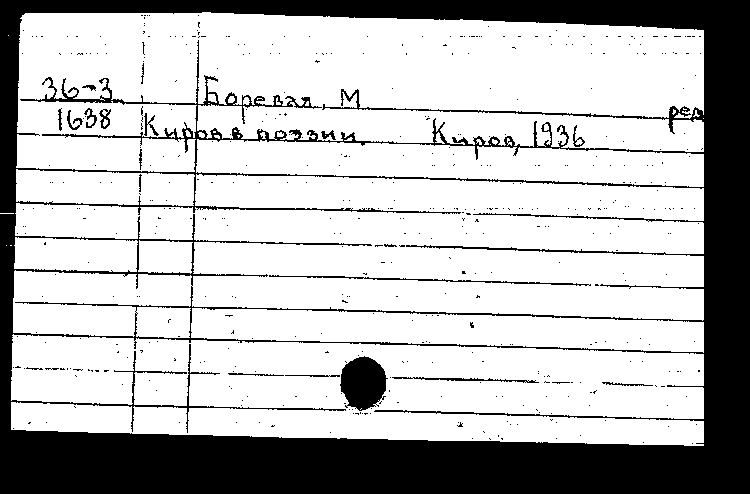 36-3 Боревая, М ред
1638 Киров в поэзии. Киров, 1936